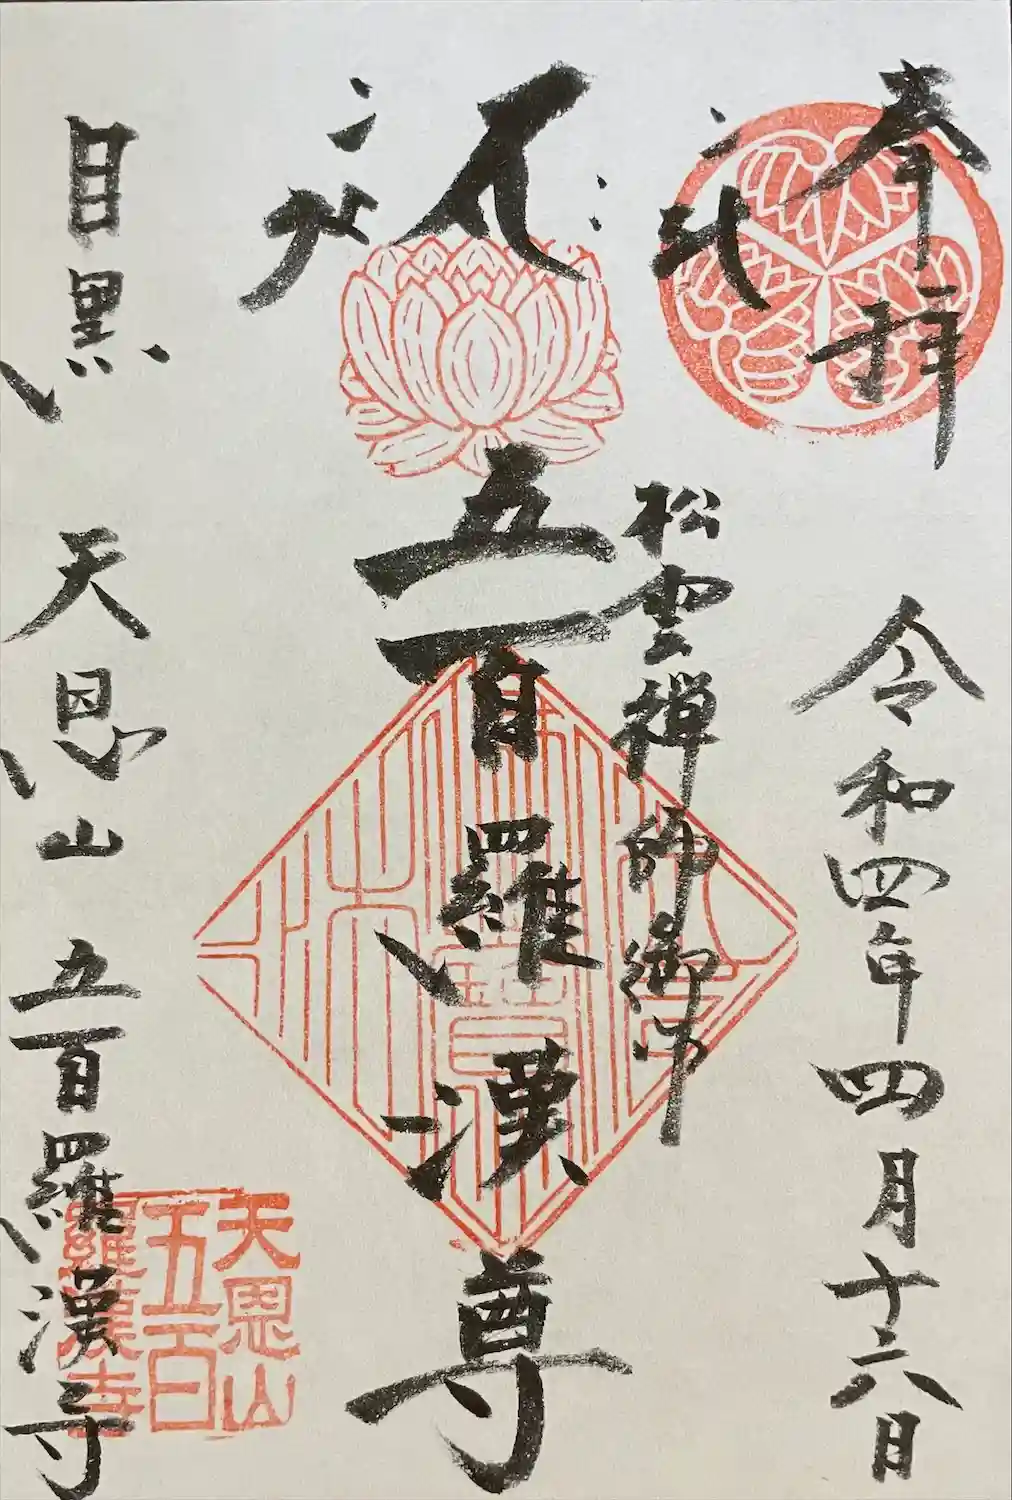 奉拝
令和四年四月十六日
松雲禅師御作
五百羅漢尊
目黒
天恩山
五百羅漢寺
天恩山
五百
羅漢寺